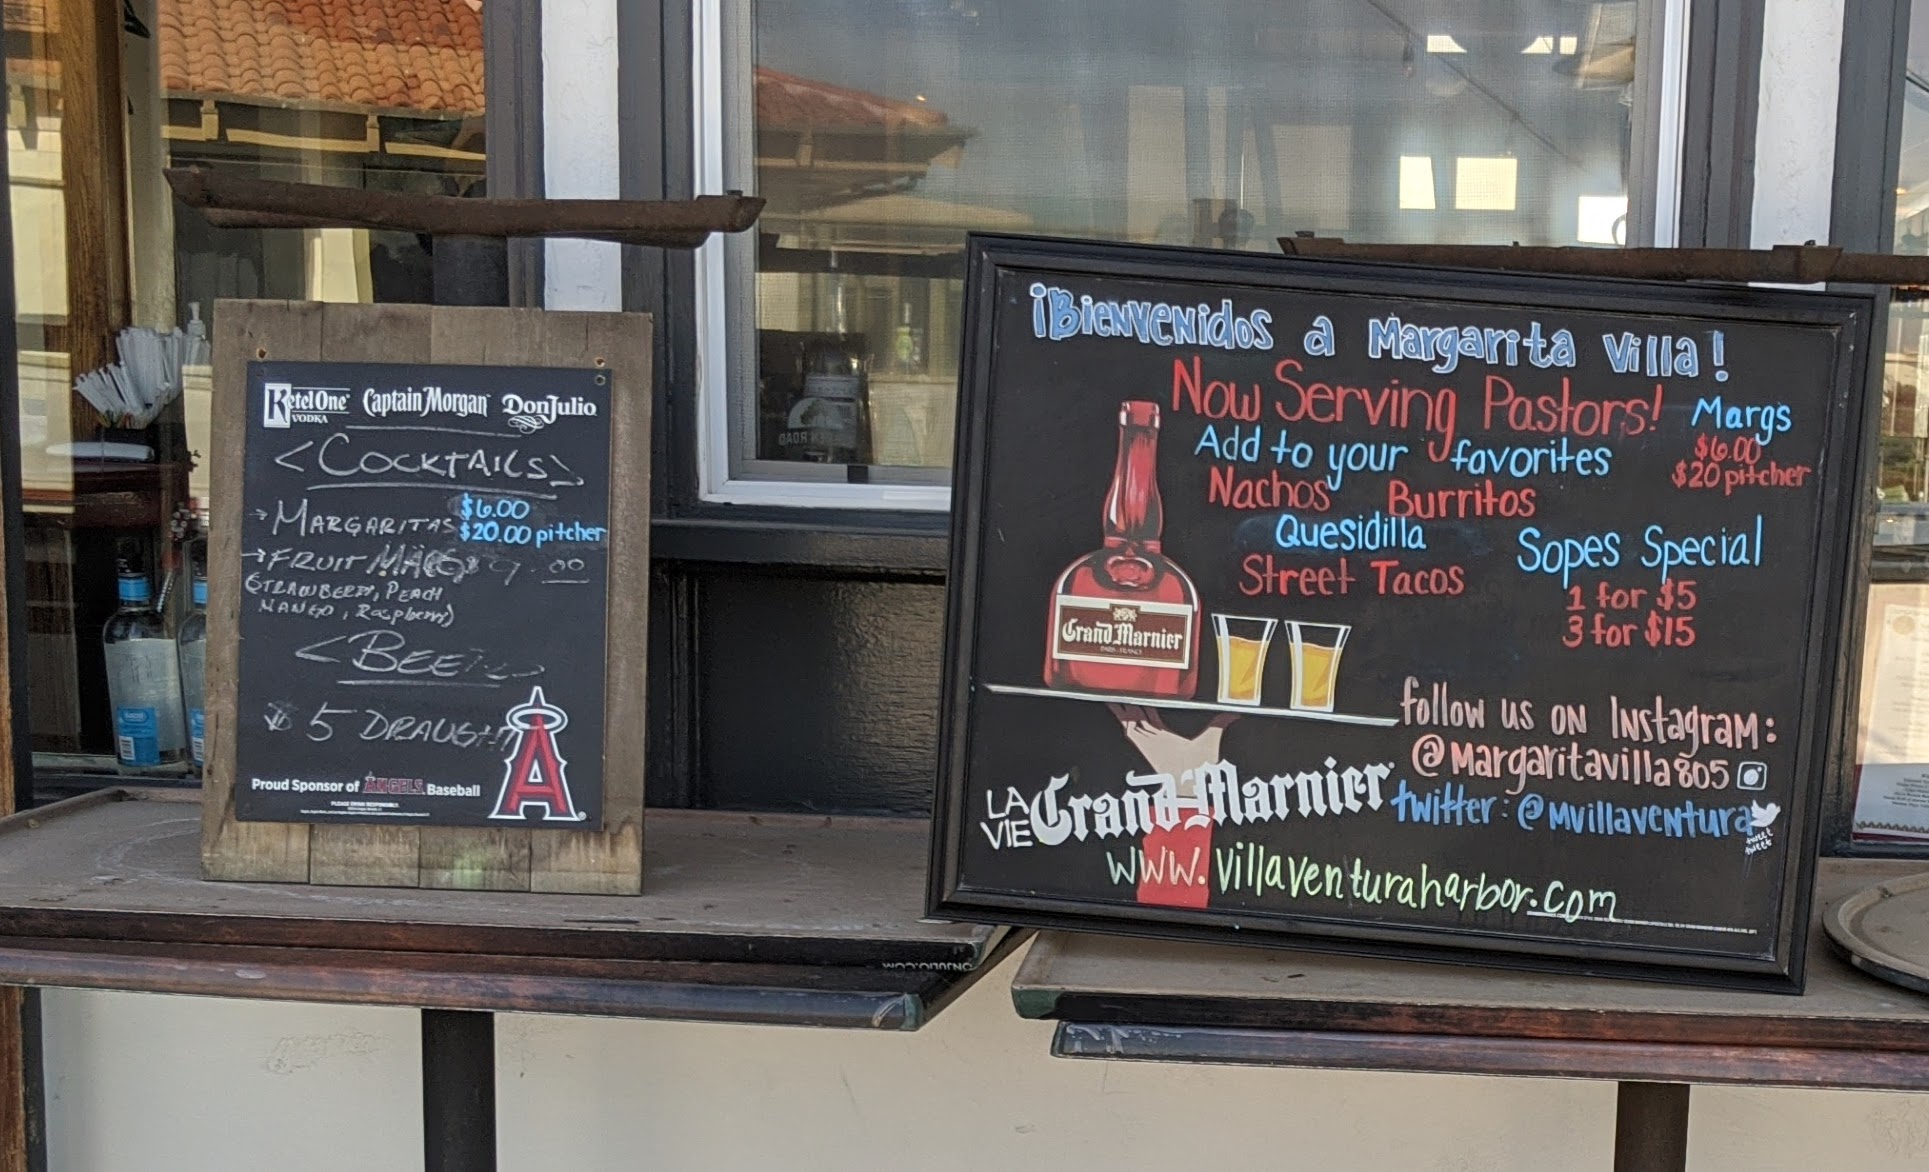 Ketel One VODKA Captain Morgan Don Julio
<COCKTAILS>
→ MARGARITAS $6.00
$20.00 pitcher
→ FRUIT MARGS $9.00
(STRAWBERRY, PEACH
MANGO, Raspberry)
<BEER
$5 DRAUGHT
Proud Sponsor of ANGELS Baseball
PLEASE DRINK RESPONSIBLY.
A
¡Bienvenidos a Margarita Villa!
Now Serving Pastors!
Add to your favorites
Nachos Burritos
Quesidilla
Street Tacos
Margs
$6.00
$20 pitcher
Sopes Special
1 for $5
3 for $15
Grand Marnier
PARIS - FRANCE
follow us on Instagram:
@Margaritavilla805
twitter: @MVillaventura
tweet
tweet
LA VIE Grand Marnier
www.villaventuraharbor.com
ONJULIO.COM